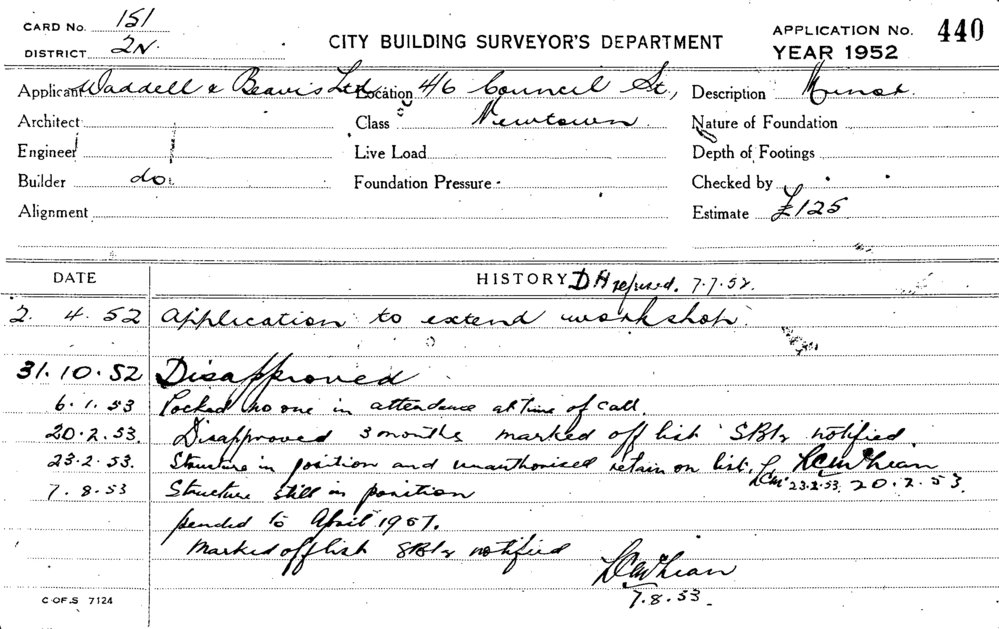 CARD No. 151
DISTRICT 2N.
CITY BUILDING SURVEYOR'S DEPARTMENT
APPLICATION No. 440
YEAR 1952
Applicant Waddell & Beavis Ltd. Location 4/6 Council St., Description
Architect Class Newtown Nature of Foundation
Engineer Live Load Depth of Footings
Builder do. Foundation Pressure Checked by
Alignment Estimate £125
DATE HISTORY DH refused. 7.7.52.
2. 4. 52 Application to extend workshop.
31.10.52 Disapproved
6.1.53 Locked no one in attendance at time of call.
20.2.53. Disapproved 3 months marked off list notified.
23.2.53. Structure in position and unauthorised retain on list.
23.2.53. 20.2.53.
7.8.53 Structure still in position
pended to April 1957.
Marked off list notified
7.8.53.
C.OF.S 7124